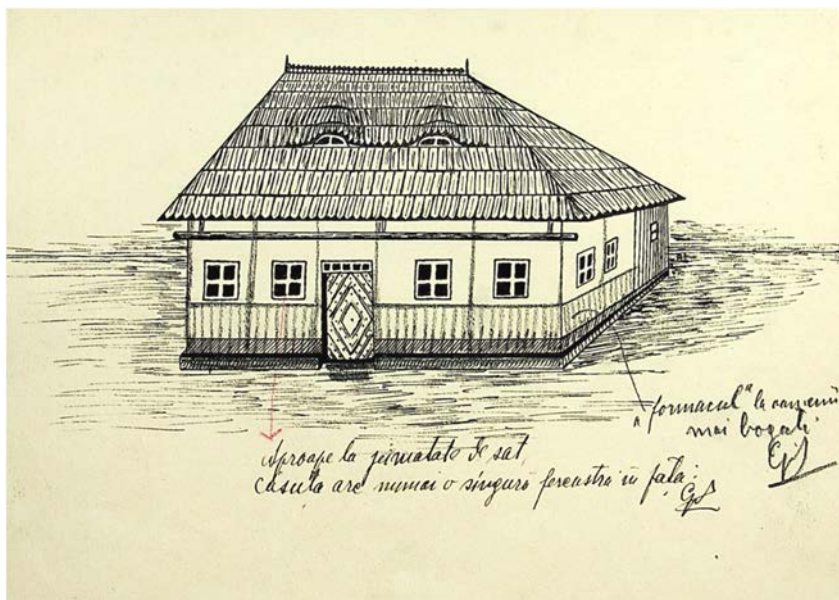 "formacul" la oamenii
mai bogați.
Aproape la jumatate de sat,
căsuța are numai o singură fereastră în față.